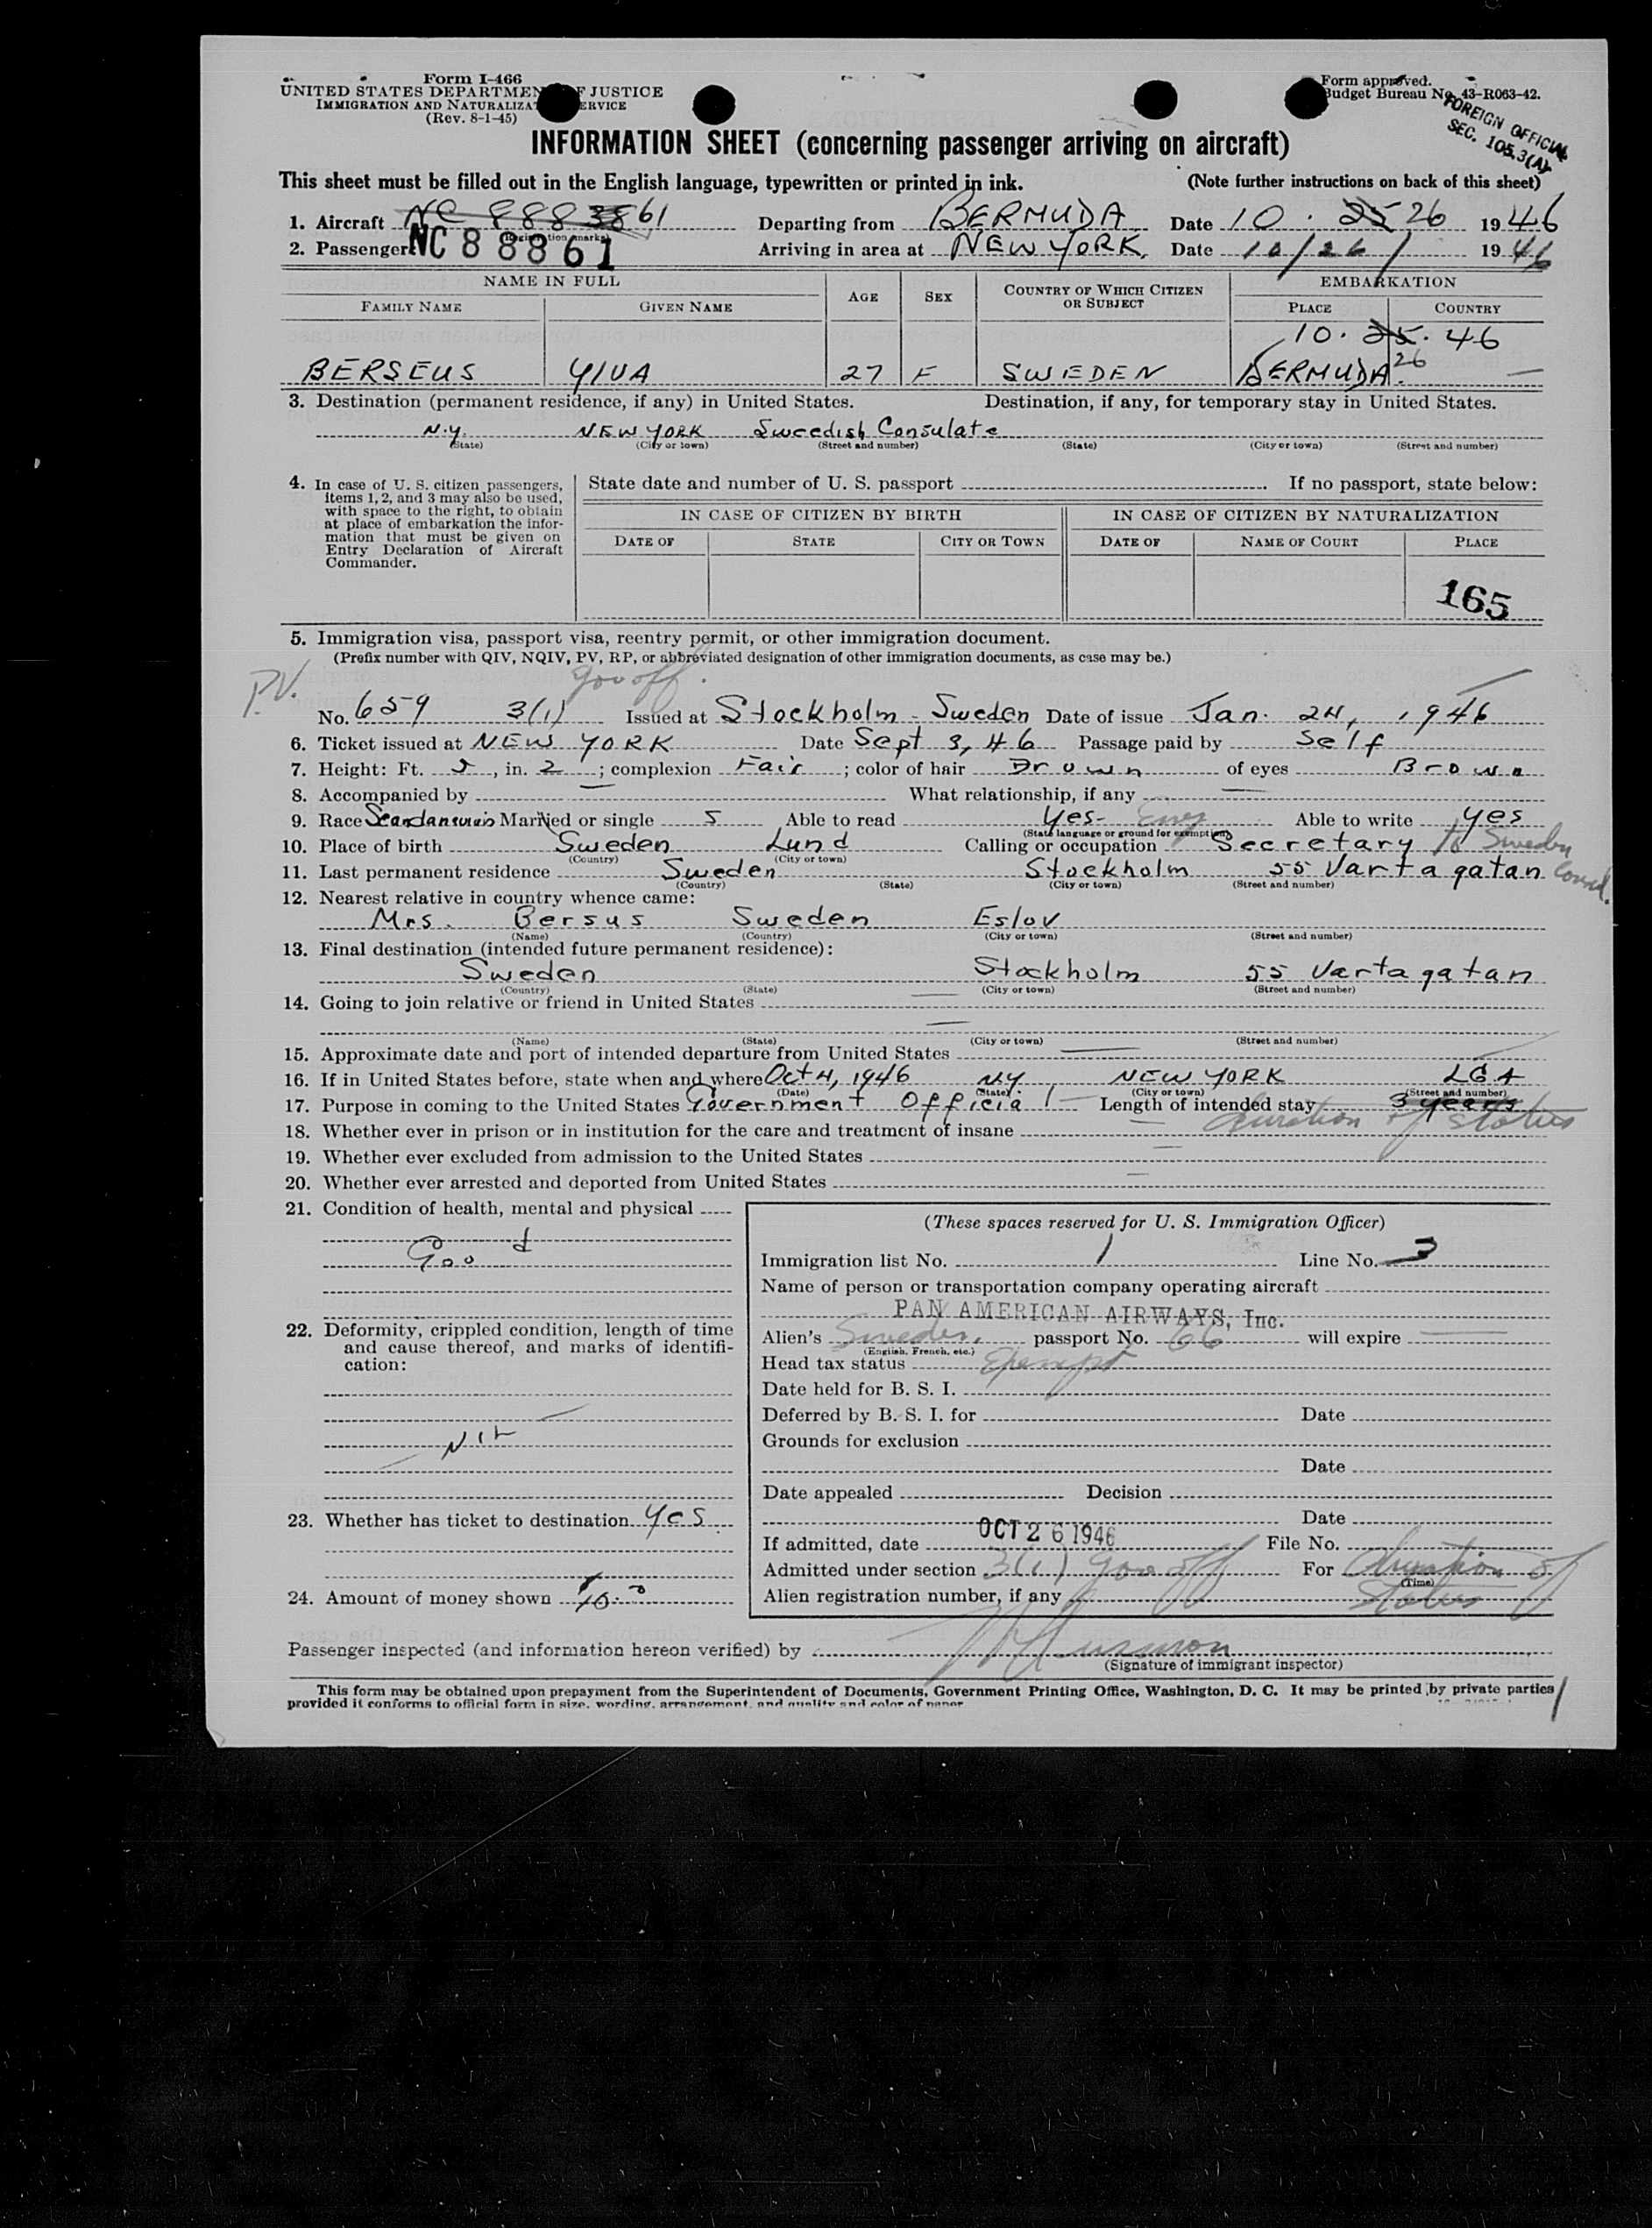 Form I-466
UNITED STATES DEPARTMENT OF JUSTICE
IMMIGRATION AND NATURALIZATION SERVICE
(Rev. 8-1-45)
Form approved.
Budget Bureau No. 43-R063-42.
FOREIGN OFFICIAL
SEC. 105.3(A)
INFORMATION SHEET (concerning passenger arriving on aircraft)
This sheet must be filled out in the English language, typewritten or printed in ink. (Note further instructions on back of this sheet)
1. Aircraft NC 8883861 Departing from BERMUDA Date 10. 25 26 1946
2. Passenger NC 88861 Arriving in area at NEW YORK. Date 10/26/ 1946
NAME IN FULL AGE SEX COUNTRY OF WHICH CITIZEN OR SUBJECT EMBARKATION
FAMILY NAME GIVEN NAME PLACE COUNTRY
10. 25. 46
26
BERSEUS YIVA 27 F SWEDEN BERMUDA. —
3. Destination (permanent residence, if any) in United States. Destination, if any, for temporary stay in United States.
N.Y. NEW YORK Swedish Consulate
(State) (City or town) (Street and number) (State) (City or town) (Street and number)
4. In case of U. S. citizen passengers, items 1, 2, and 3 may also be used, with space to the right, to obtain at place of embarkation the information that must be given on Entry Declaration of Aircraft Commander.
State date and number of U. S. passport If no passport, state below:
IN CASE OF CITIZEN BY BIRTH IN CASE OF CITIZEN BY NATURALIZATION
DATE OF STATE CITY OR TOWN DATE OF NAME OF COURT PLACE
165
5. Immigration visa, passport visa, reentry permit, or other immigration document.
(Prefix number with QIV, NQIV, PV, RP, or abbreviated designation of other immigration documents, as case may be.)
P.V. gov off.
No. 659 3(1) Issued at Stockholm - Sweden Date of issue Jan. 24, 1946
6. Ticket issued at NEW YORK Date Sept 3, 46 Passage paid by Self
7. Height: Ft. 5, in. 2; complexion Fair; color of hair Brown of eyes Brown
8. Accompanied by — What relationship, if any —
9. Race Scandanevian Married or single S Able to read Yes- Eng Able to write yes
(State language or ground for exemption)
10. Place of birth Sweden Lund Calling or occupation Secretary to Sweden Consul.
(Country) (City or town)
11. Last permanent residence Sweden Stockholm 55 Vartagatan
(Country) (State) (City or town) (Street and number)
12. Nearest relative in country whence came:
Mrs. Bersus Sweden Eslov
(Name) (Country) (City or town) (Street and number)
13. Final destination (intended future permanent residence):
Sweden Stockholm 55 Vartagatan
(Country) (State) (City or town) (Street and number)
14. Going to join relative or friend in United States —
—
(Name) (State) (City or town) (Street and number)
15. Approximate date and port of intended departure from United States —
16. If in United States before, state when and where Oct 4, 1946 NY. NEW YORK LGA
(Date) (State) (City or town) (Street and number)
17. Purpose in coming to the United States Government Official — Length of intended stay 3 years
duration of status
18. Whether ever in prison or in institution for the care and treatment of insane —
19. Whether ever excluded from admission to the United States —
20. Whether ever arrested and deported from United States —
21. Condition of health, mental and physical
Good
22. Deformity, crippled condition, length of time and cause thereof, and marks of identification:
NIL
23. Whether has ticket to destination Yes
24. Amount of money shown
(These spaces reserved for U. S. Immigration Officer)
Immigration list No. 1 Line No. 3
Name of person or transportation company operating aircraft
PAN AMERICAN AIRWAYS, Inc.
Alien's Sweden. passport No. 66 will expire —
(English, French, etc.)
Head tax status Exempt
Date held for B. S. I.
Deferred by B. S. I. for Date
Grounds for exclusion
Date
Date appealed Decision
Date
If admitted, date OCT 26 1946 File No.
Admitted under section 3(1) gov off For duration of status
(Time)
Alien registration number, if any
Passenger inspected (and information hereon verified) by
(Signature of immigrant inspector)
This form may be obtained upon prepayment from the Superintendent of Documents, Government Printing Office, Washington, D. C. It may be printed by private parties
provided it conforms to official form in size, wording, arrangement, and quality and color of paper